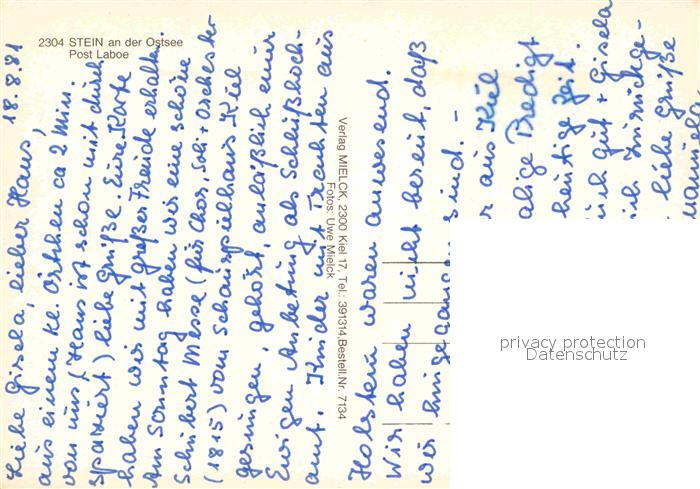 2304 STEIN an der Ostsee
Post Laboe
18.8.91
Liebe Gisela, lieber Haus,
aus einem kl. Örtchen ca 2 Min.
von uns, (Haus ist schon mit durch
spaziert) liebe Grüße. Eure Karte
haben wir mit großer Freude erhalten.
Am Sonntag haben wir eine schöne
Schubert Messe (für Chor, Soli + Orchester
(1815) vom Schauspielhaus Kiel
gesungen, gehört, anläßlich einer
Ewigen Anbetung als Schlußhoch-
amt. Kinder mit Trachten aus
Verlag MIELCK, 2300 Kiel 17, Tel.: 391314, Bestell.Nr. 7134
Fotos: Uwe Mielck
Holstein waren anwesend.
Wir haben nicht bereut, daß
wir hingegangen sind. –
r aus Kiel
alige Predigt
heutige Zeit.
ich gut + Gisela
ich zurückge-
liebe Grüße
privacy protection
Datenschutz